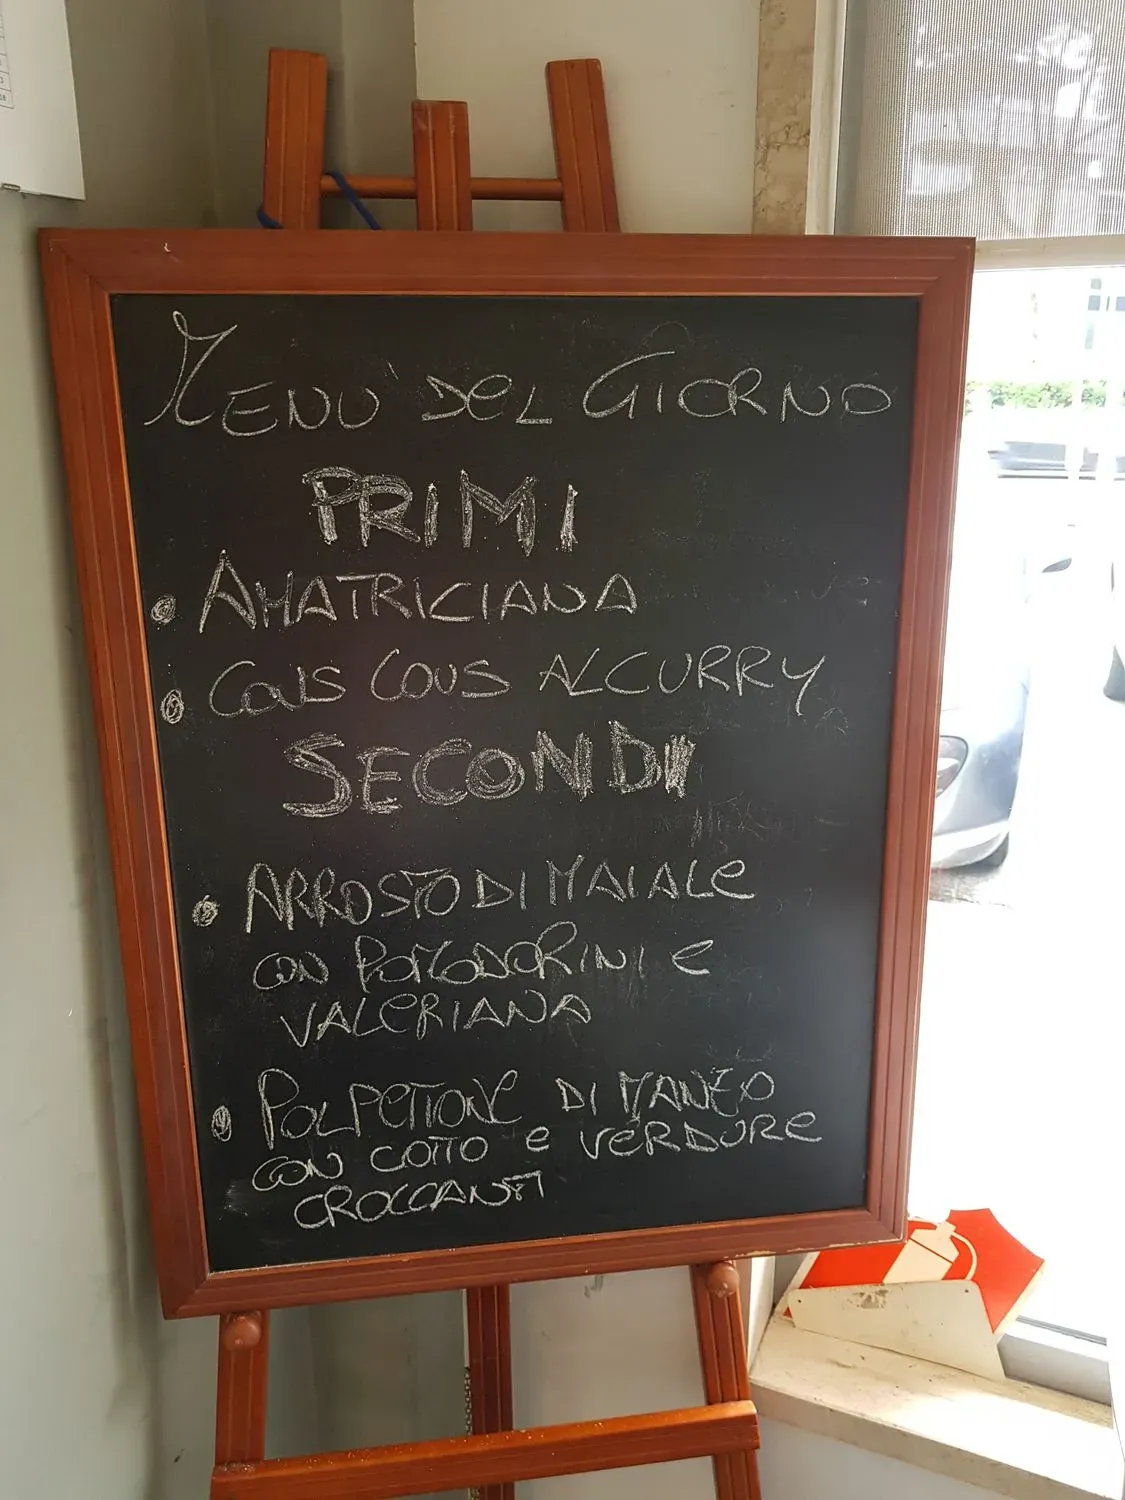 MENU' DEL GIORNO
PRIMI
• AMATRICIANA
• COUS COUS AL CURRY
SECONDI
• ARROSTO DI MAIALE
CON POMODORINI E
VALERIANA
• POLPETTONE DI MANZO
CON COTTO E VERDURE
CROCCANTI